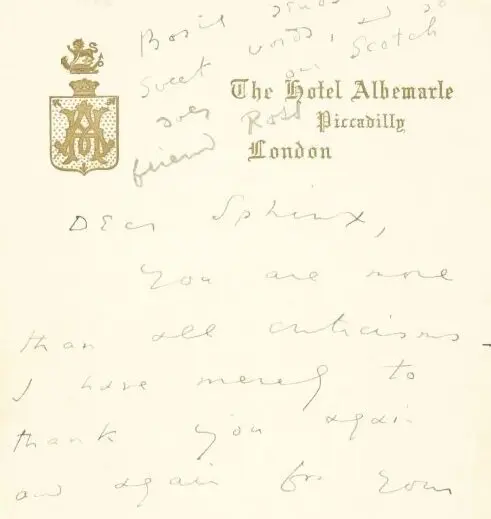 Bosie sends
sweet words, & so
does our Scotch
friend Ross
The Hotel Albemarle
Piccadilly
London
Dear Sphinx,
You are more
than all criticisms -
I have merely to
thank you again
and again for your